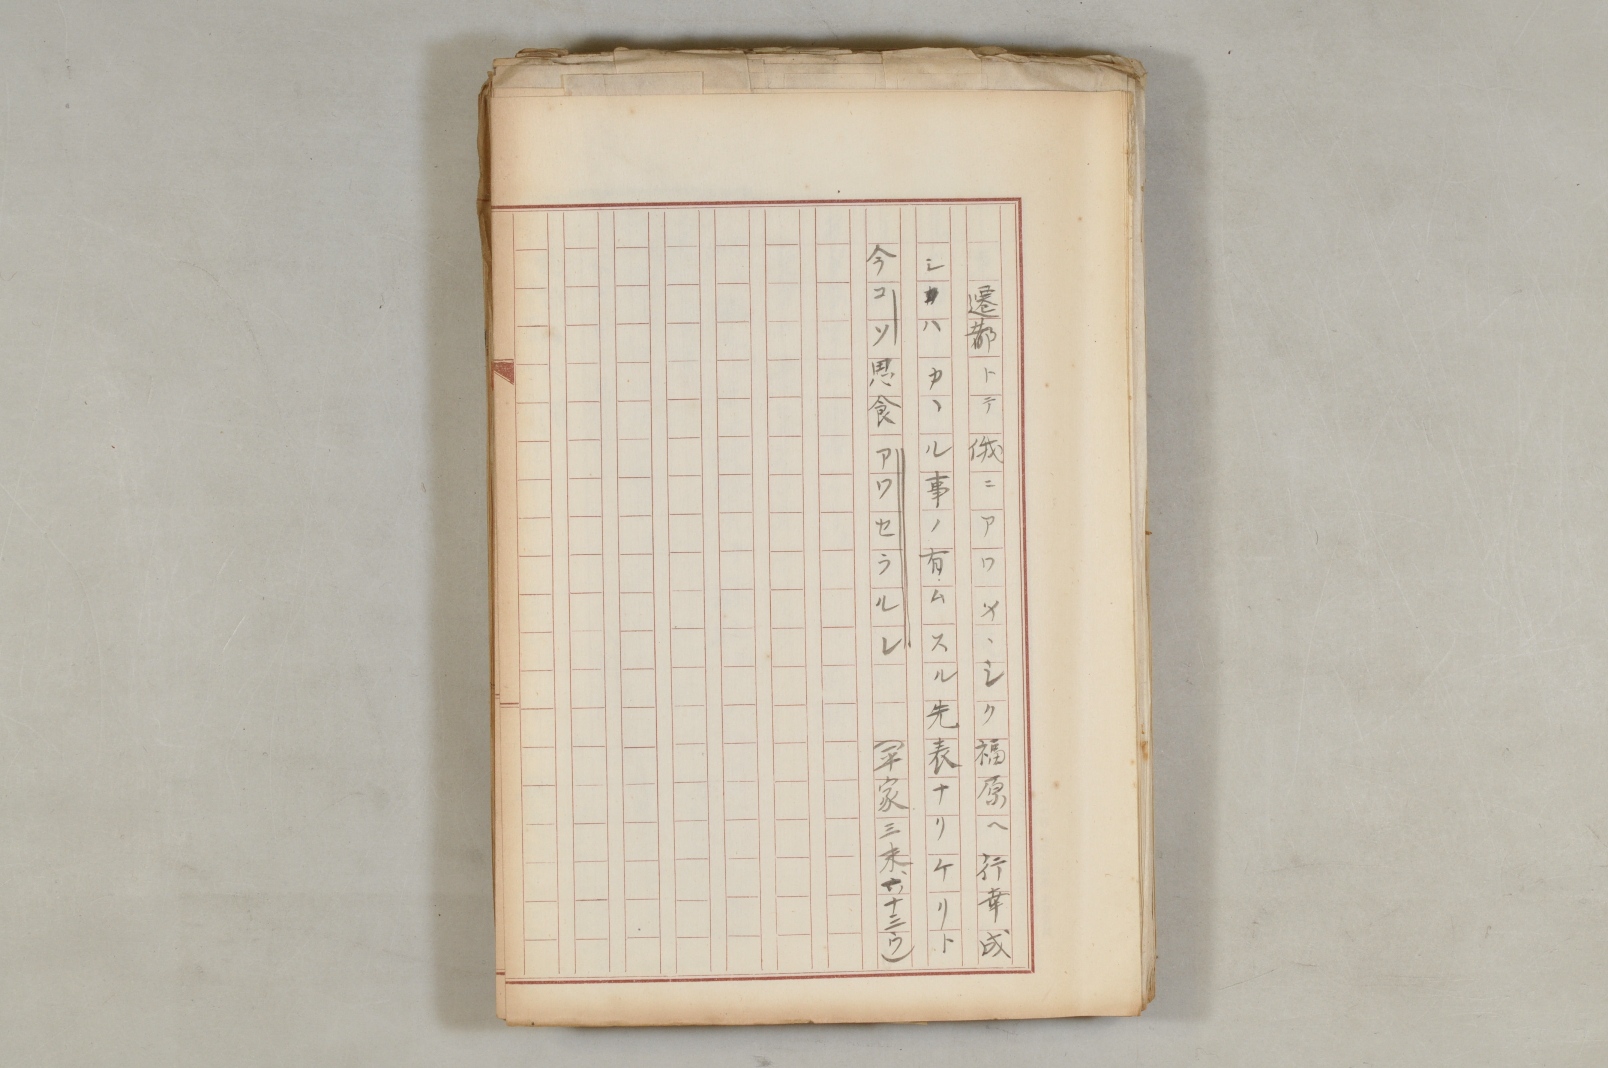 遷都トテ俄ニアワタヽシク福原ヘ行幸成
シカハカヽル事ノ有ムスル先表ナリケリト
今コソ思食アワセラルレ　(平家三末、六十三ウ)